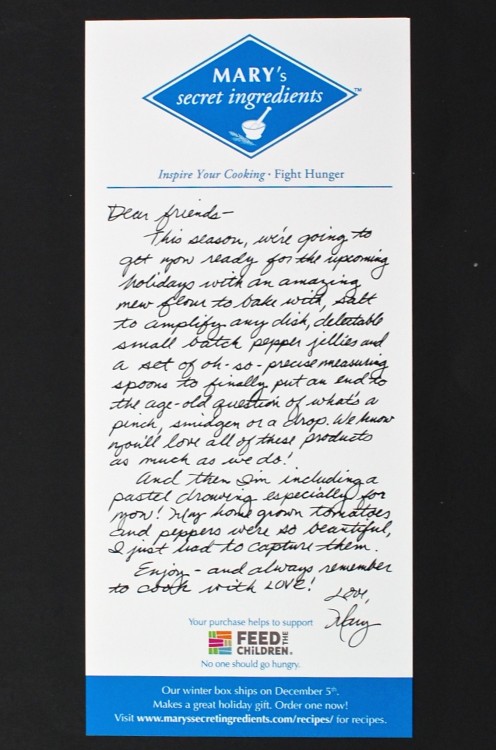 MARY's
secret ingredients™
Inspire Your Cooking · Fight Hunger
Dear friends-
This season, we're going to
get you ready for the upcoming
holidays with an amazing
new flour to bake with, salt
to amplify any dish, delectable
small batch pepper jellies and
a set of oh-so-precise measuring
spoons to finally put an end to
the age-old question of what's a
pinch, smidgen or a drop. We know
you'll love all of these products
as much as we do!
And then I'm including a
pastel drawing especially for
you! My home grown tomatoes
and peppers were so beautiful,
I just had to capture them.
Enjoy - and always remember
to cook with LOVE!
Love,
Mary
Your purchase helps to support
FEED THE
CHILDREN®
No one should go hungry.
Our winter box ships on December 5th.
Makes a great holiday gift. Order one now!
Visit www.maryssecretingredients.com/recipes/ for recipes.